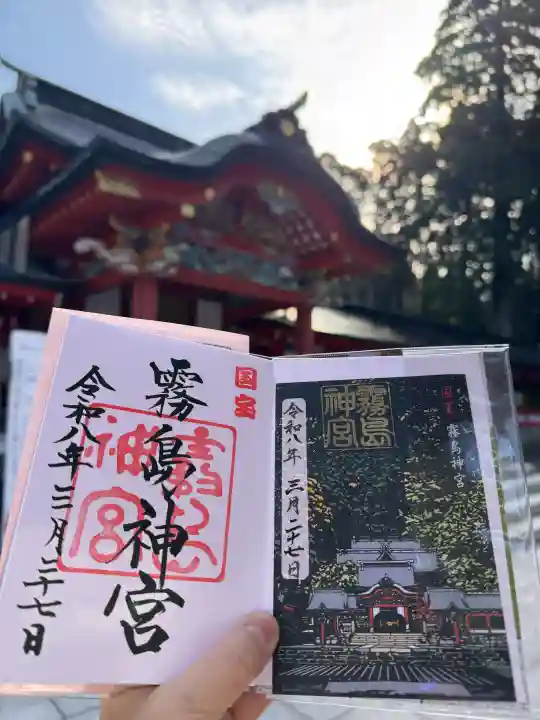 国宝
霧島神宮
令和八年三月二十七日
霧島
神宮
国宝
霧島神宮
令和八年 三月二十七日